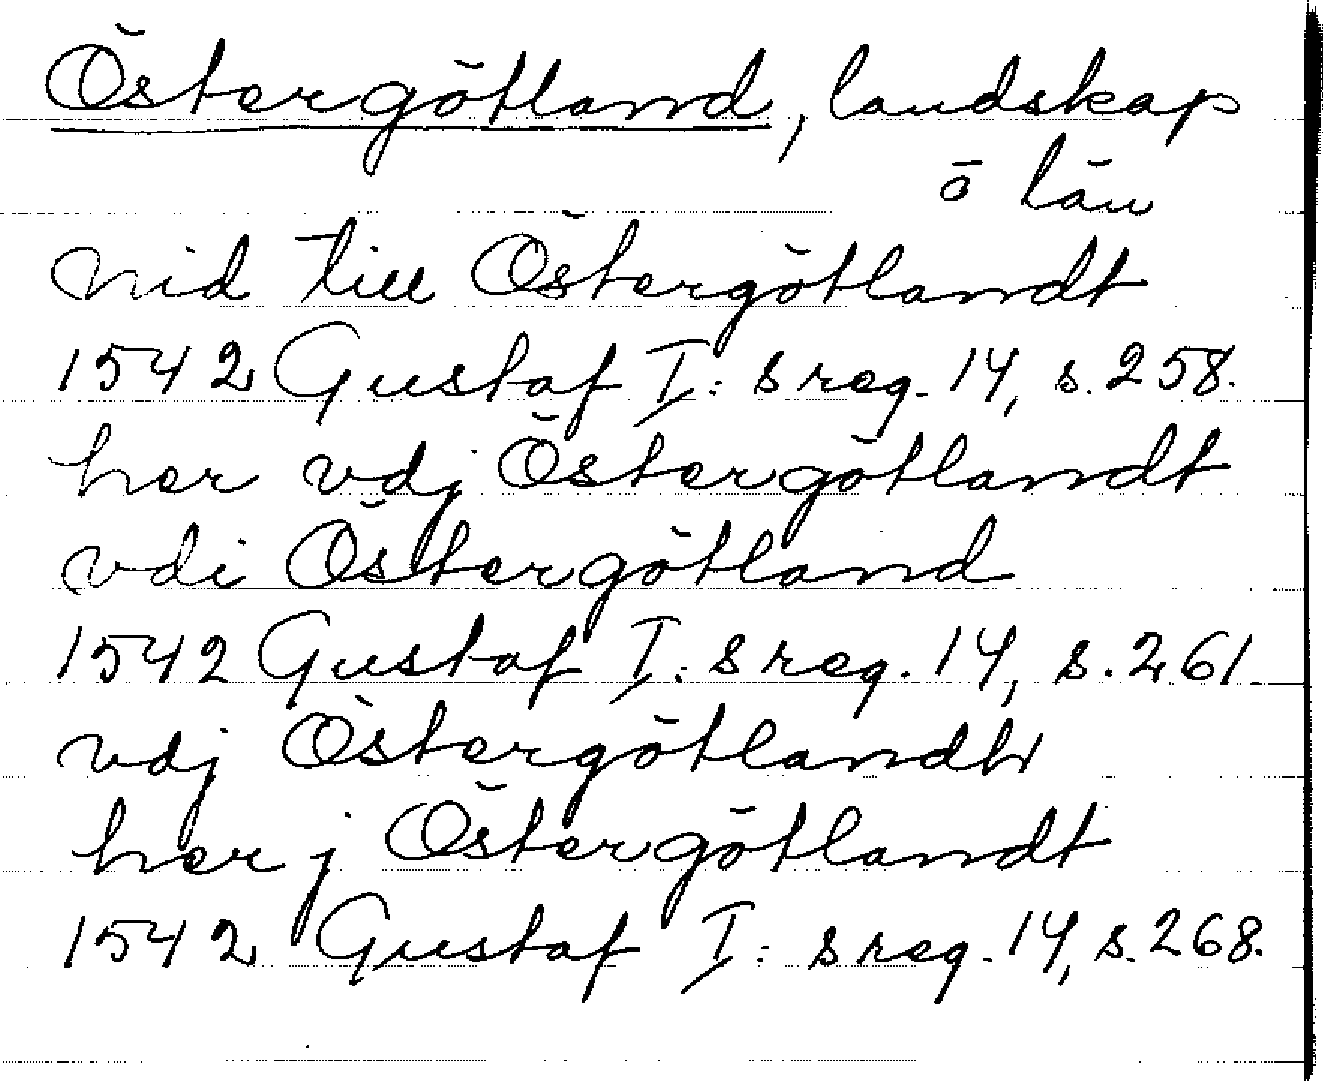 Östergötland, landskap
o län
nid till Östergötlandt
1542 Gustaf I:s reg. 14, s. 258.
her vdj Östergötlandt
vdi Östergötland
1542 Gustaf I:s reg. 14, s. 261.
vdj Östergötlandh
her j Östergötlandt
1542 Gustaf I:s reg. 14, s. 268.